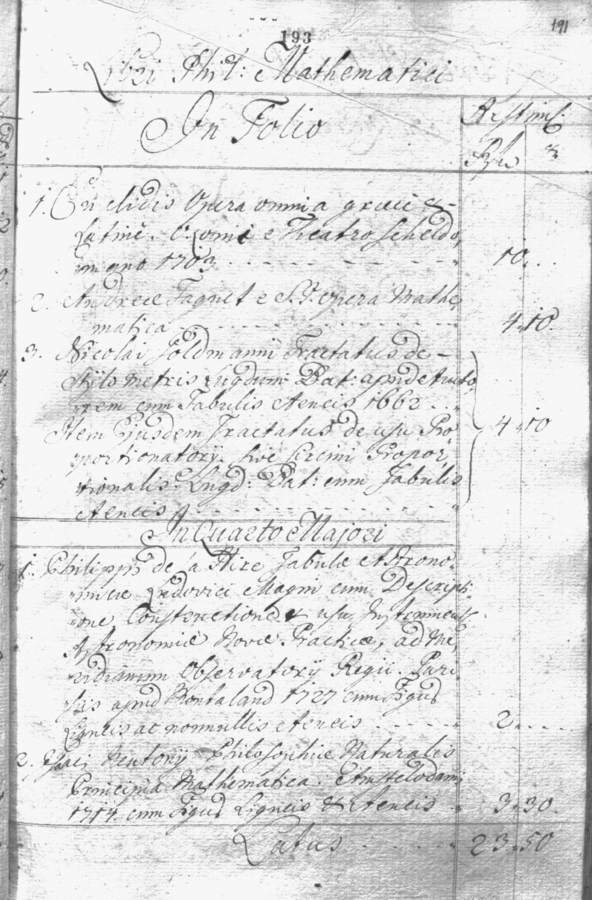 193
191
Libri Phil: Mathematici
In Folio
Æstim:
Rfl xr
1. Euclidis Opera omnia græce &
Latine. Oxoniæ e Theatro Scheldo
anno 1703 10.
2. Andreæ Taquet e S.J. opera Mathe
matica 4.10.
3. Nicolai Goldmanni Tractatus de
Stylometris Lugduni Bat: apud Aucto
rem cum Tabulis Aeneis 1662
Item Ejusdem Tractatus de usu Pro 4.10
portionatorij sive Circini Propor
tionalis. Lugd: Bat: cum Tabulis
Aeneis
In Quarto Majori
1. Philippi de la Hire Tabulæ Astrono
micæ Ludovici Magni cum Descripti
one Constructione & usu Instrument:
Astronomiæ Novæ Practicæ, ad Me
ridianum Observatorij Regii Pari
sijs apud Montaland 1727 cum Figuris
Ligneis ac nonnullis Aeneis 2.
2. Isaci Neutonij Philosophiæ Naturalis
Principia Mathematica. Amstelodami
1714. cum Figuris Ligneis & Aeneis 3.30.
Latus 23.50